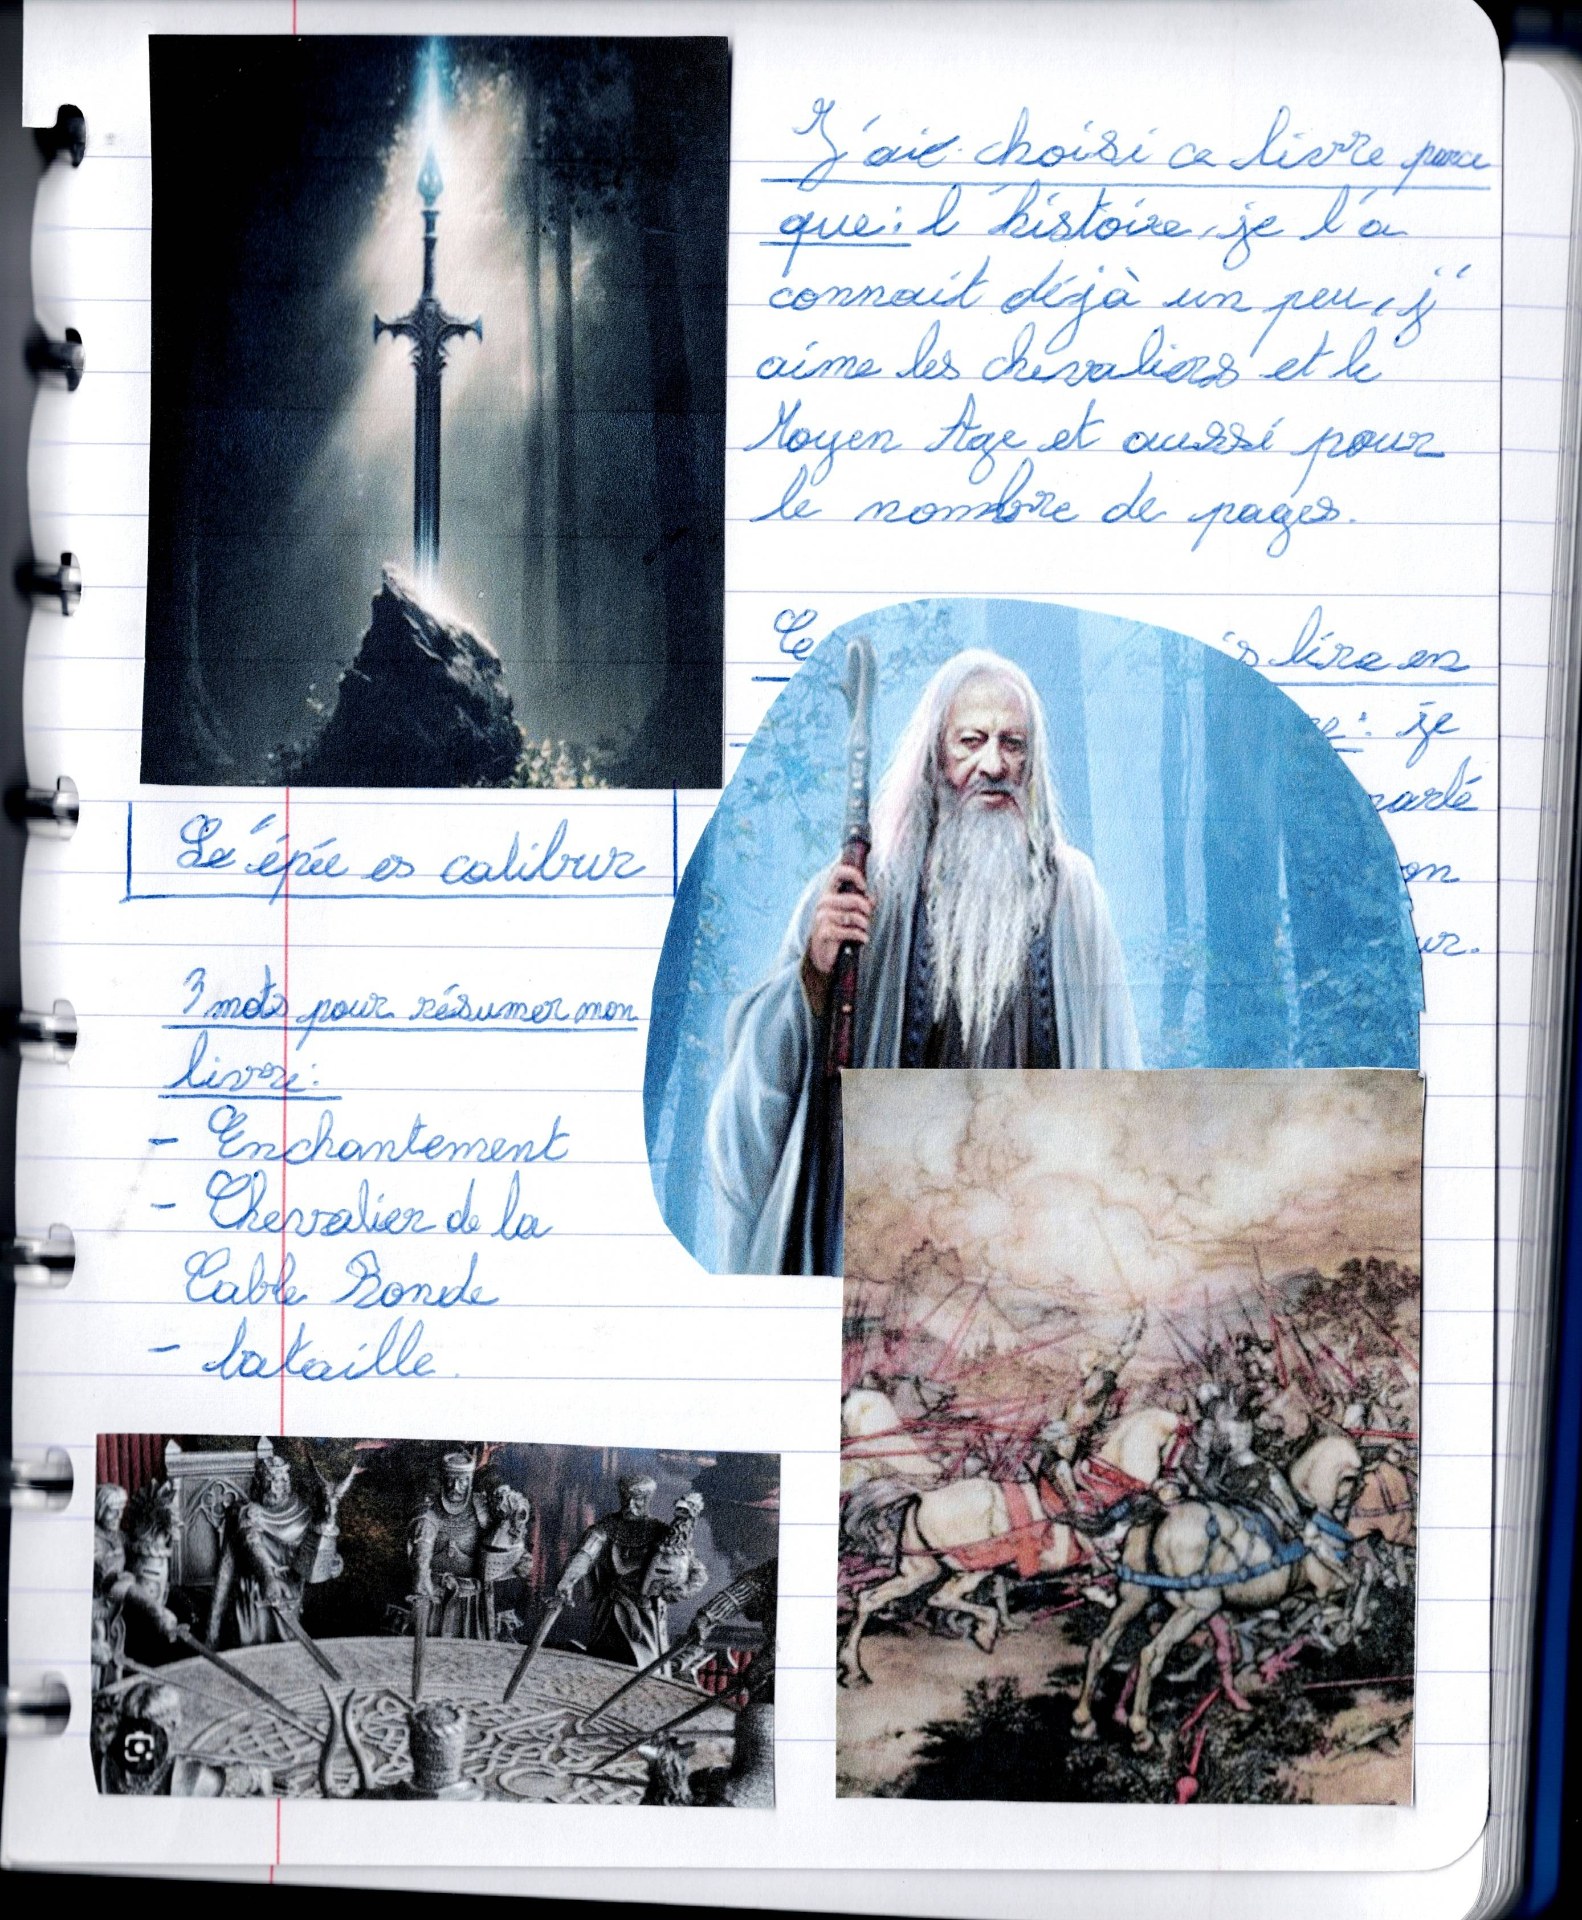 J'aie choisi ce livre parce
que: l'histoire, je l'a
connait déjà un peu, j'
aime les chevaliers et le
Moyen Age et aussi pour
le nombre de pages.
is lire en
: je
parlé
on
ur.
Le épée es calibur
3 mots pour résumer mon
livre:
- Enchantement
- Chevalier de la
Table Ronde
- bataille.